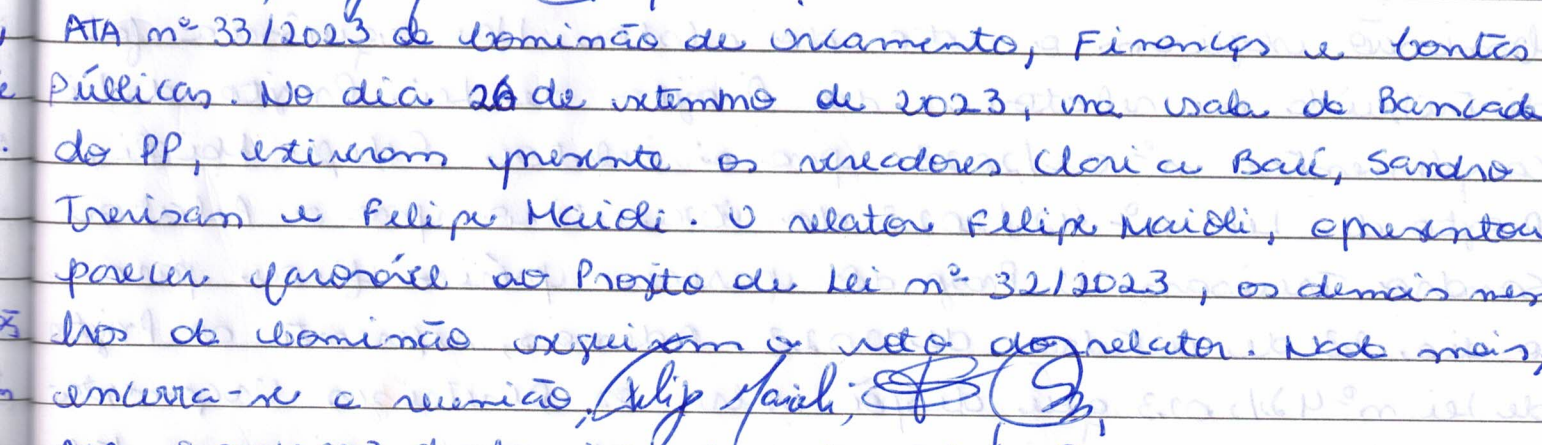 ATA nº 33/2023 da Comissão de Orçamento, Finanças e Contas
Públicas. No dia 26 de setembro de 2023, na sala da Bancada
do PP, estiveram presente os vereadores Clarice Baú, Sandro
Trevisan e Felipe Maioli. O relator Felipe Maioli, apresentou
parecer favorável ao Projeto de Lei nº 32/2023, os demais mem
bros da comissão seguiram o voto do relator. Nada mais,
encerra-se a reunião. Felipe Maioli,